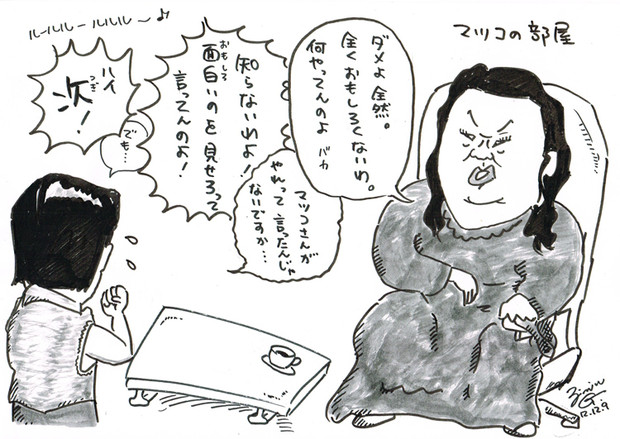 マツコの部屋
ダメよ 全然。
全くおもしろくないわ。
何やってんのよ バカ
マツコさんが
やれって言ったんじゃ
ないですか…
知らないわよ!
面白いのを見せろって
おもしろ
言ってんのよ!
でも…
ハイ
次!
つぎ
ルールルールルル～♪
12.12.9